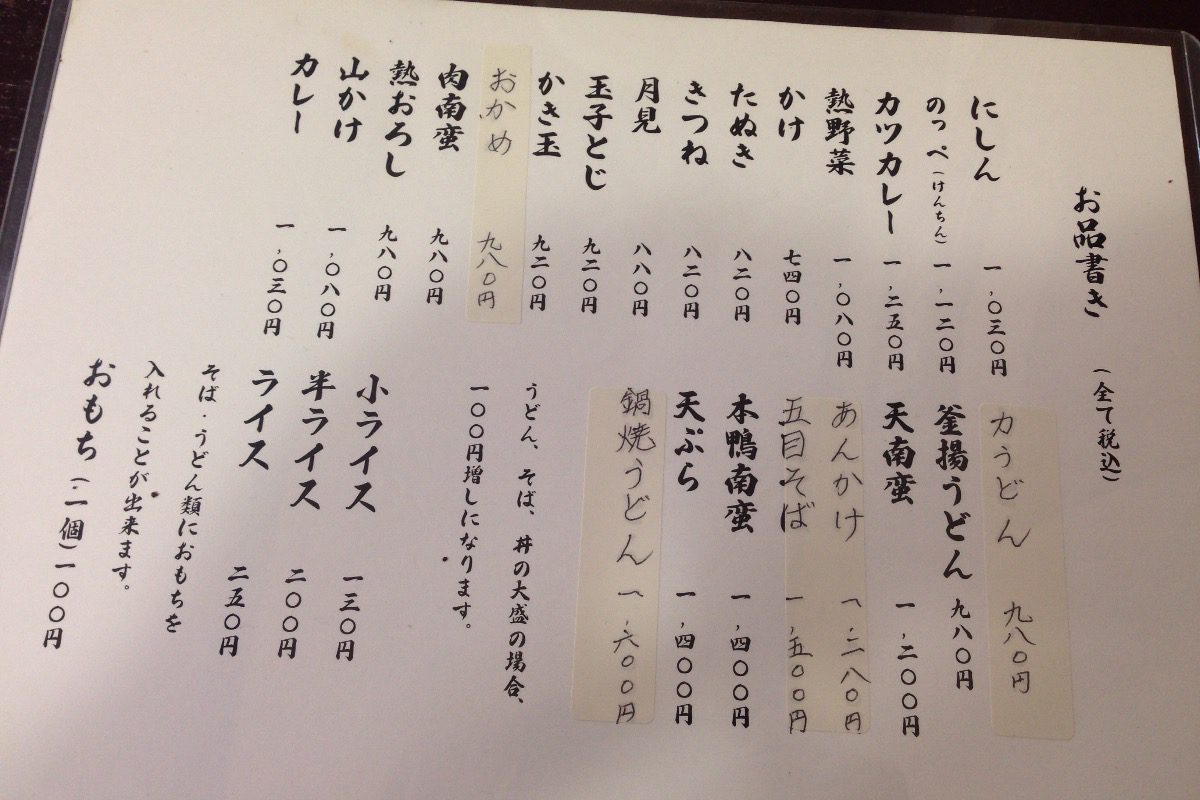 お品書き (全て税込)
にしん 一,〇三〇円
のっぺ(けんちん) 一,一二〇円
カツカレー 一,二五〇円
熱野菜 一,〇八〇円
かけ 七四〇円
たぬき 八二〇円
きつね 八二〇円
月見 八八〇円
玉子とじ 九二〇円
かき玉 九二〇円
おかめ 九八〇円
肉南蛮 九八〇円
熱おろし 九八〇円
山かけ 一,〇八〇円
カレー 一,〇三〇円
力うどん 九八〇円
釜揚うどん 九八〇円
天南蛮 一,二〇〇円
あんかけ 一,二八〇円
五目そば 一,五〇〇円
本鴨南蛮 一,四〇〇円
天ぷら 一,四〇〇円
鍋焼うどん 一,六〇〇円
うどん、そば、丼の大盛の場合、
一〇〇円増しになります。
小ライス 一三〇円
半ライス 二〇〇円
ライス 二五〇円
そば・うどん類におもちを
入れることが出来ます。
おもち(二個)一〇〇円